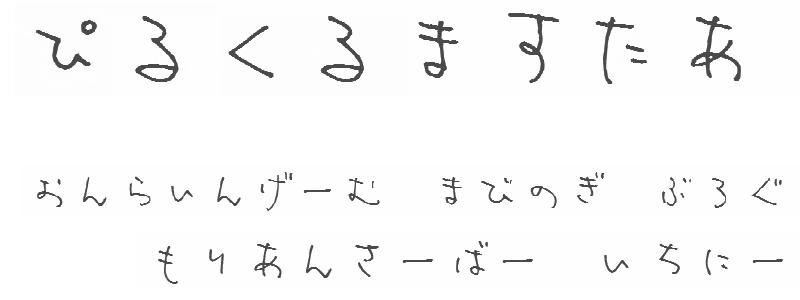 ぴるくるますたあ
おんらいんげーむ　まびのぎ　ぶろぐ
もりあんさーばー　いちにー